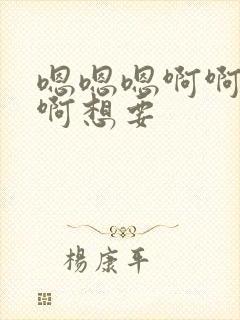 嗯嗯嗯啊啊
啊想要
楊康平